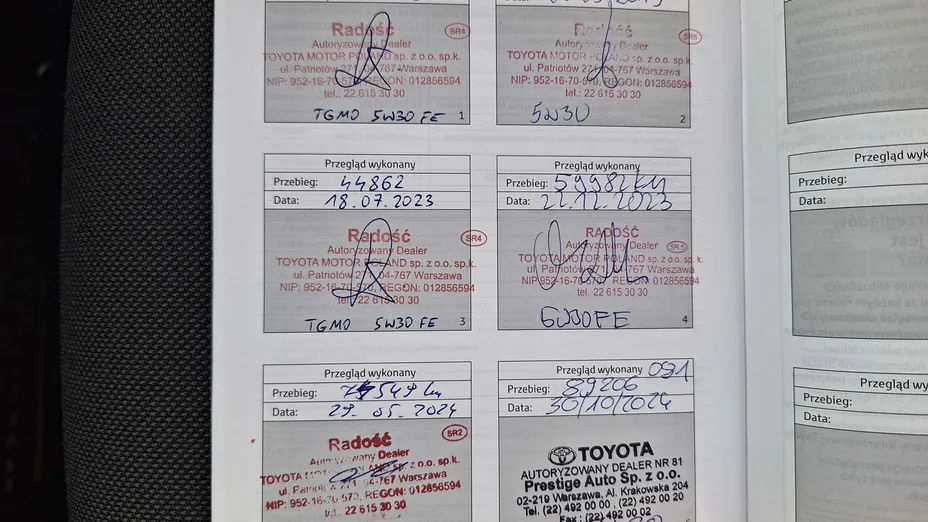 Radość
SR4
Autoryzowany Dealer
TOYOTA MOTOR POLAND sp. z o.o. sp.k.
ul. Patriotów 271, 04-767 Warszawa
NIP: 952-16-70-570, REGON: 012856594
tel.: 22 615 30 30
TGMO 5W30 FE
1
Radość
SR5
Autoryzowany Dealer
TOYOTA MOTOR POLAND sp. z o.o. sp.k.
ul. Patriotów 271, 04-767 Warszawa
NIP: 952-16-70-570, REGON: 012856594
tel.: 22 615 30 30
5W30
2
Przegląd wykonany
Przebieg: 44862
Data: 18.07.2023
Radość
SR4
Autoryzowany Dealer
TOYOTA MOTOR POLAND sp. z o.o. sp.k.
ul. Patriotów 271, 04-767 Warszawa
NIP: 952-16-70-570, REGON: 012856594
tel.: 22 615 30 30
TGMO 5W30 FE
3
Przegląd wykonany
Przebieg: 59982 km
Data: 22.12.2023
RADOŚĆ
Autoryzowany Dealer
SR5
TOYOTA MOTOR POLAND sp. z o.o. sp.k.
ul. Patriotów 271, 04-767 Warszawa
NIP: 952-16-70-570, REGON: 012856594
tel. 22 615 30 30
4
Przegląd wykonany
Przebieg: km
Data: 29.05.2024
Radość
SR2
Autoryzowany Dealer
TOYOTA MOTOR POLAND sp. z o.o. sp.k.
ul. Patriotów 271, 04-767 Warszawa
NIP: 952-16-70-570, REGON: 012856594
tel.: 22 615 30 30
Przegląd wykonany 091
Przebieg: 89206
Data: 30/10/2024
TOYOTA
AUTORYZOWANY DEALER NR 81
Prestige Auto Sp. z o.o.
02-219 Warszawa, Al. Krakowska 204
Tel. (22) 492 00 00, (22) 492 00 20
Fax : (22) 492 00 02
Przegląd wyk
Przebieg:
Data:
Przegląd wy
Przebieg:
Data: